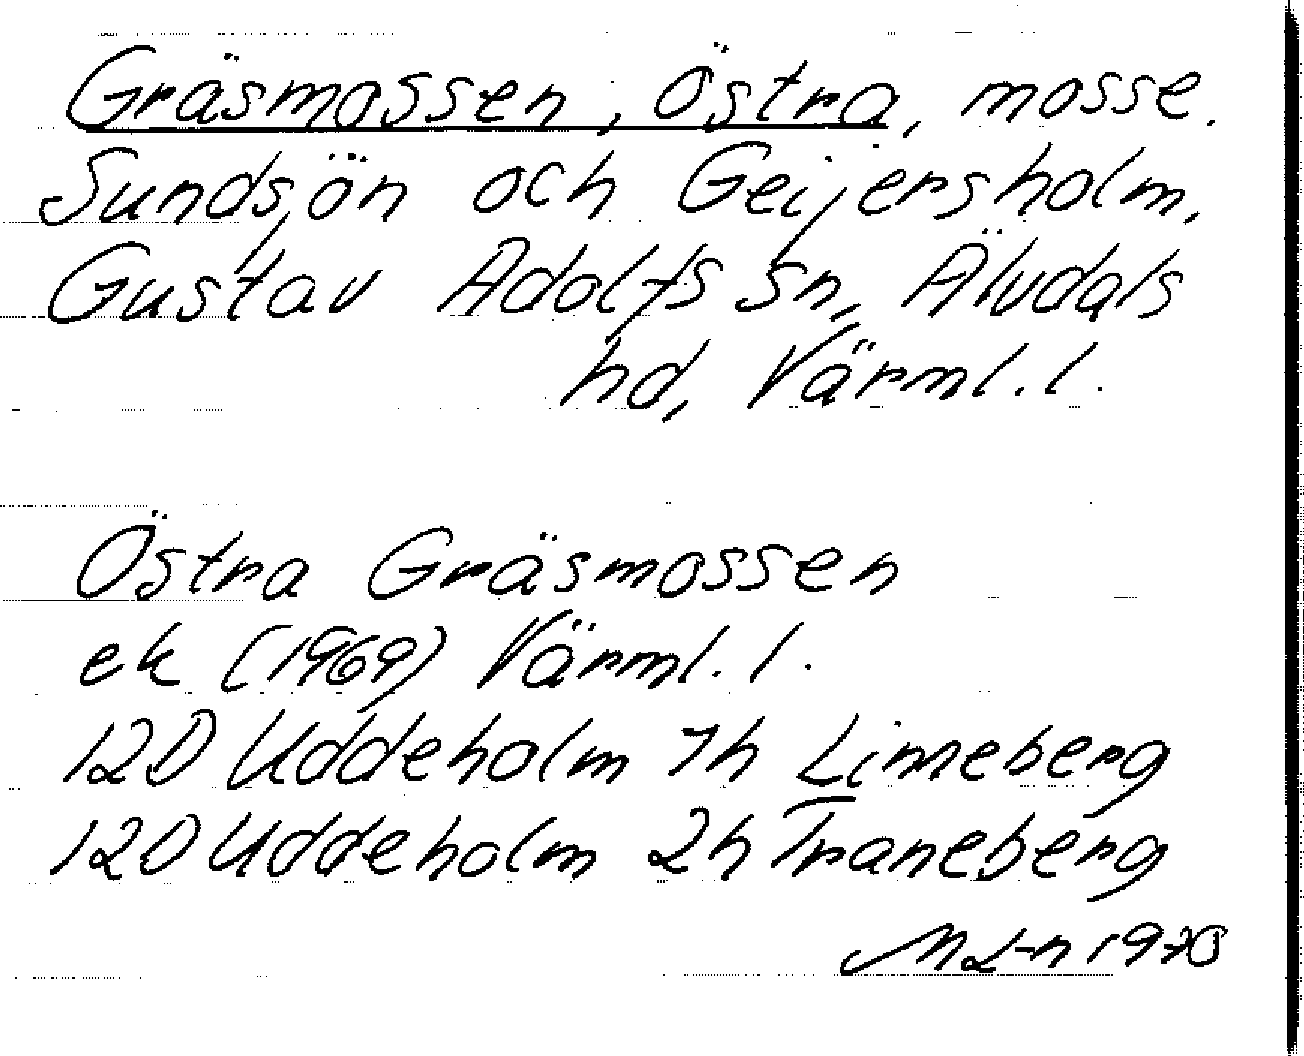 Gräsmossen, Östra, mosse.
Sundsjön och Geijersholm,
Gustav Adolfs sn, Älvdals
hd, Värml. l.
Östra Gräsmossen
ek (1969) Värml. l.
12D Uddeholm 7h Linneberg
12D Uddeholm 2h Traneberg
M L-n 1970